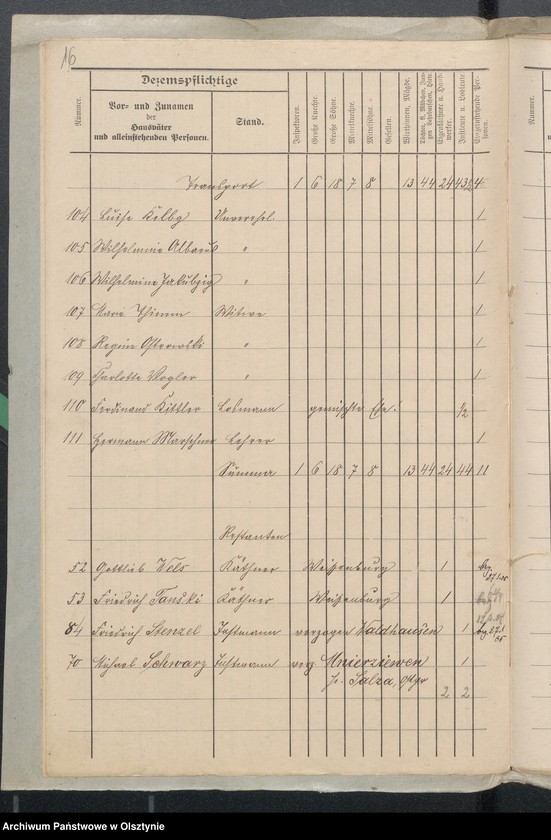 16
Nummer.
Dezemspflichtige
Vor- und Zunamen
der
Hausväter
und alleinstehenden Personen.
Stand.
Inspektoren.
Große Knechte.
Große Söhne.
Mittelknechte.
Mittelsöhne.
Gesellen.
Wirtinnen, Mägde.
Eigenkätner u. Handwerker.
Instleute u. Losleute.
Einzelstehende Personen.
Nummer.
Transport 1 6 18 7 8 13 44 24 43½ 4
104 Luise Kelbg Unverehel. 1
105 Wilhelmine " 1
106 Wilhelmine " 1
107 Marie Thimm Witwe 1
108 Regine " 1
109 Charlotte Vogler " 1
110 Ferdinand Kittler Losmann gemischte Ehe. ½
111 Hermann Marschner Lehrer 1
Summa 1 6 18 7 8 13 44 24 44 11
Restanten
52 Gottlieb Wels Käthner Weissenburg 1
53 Friedrich Tanski Käthner Weissenburg 1
84 Friedrich Stenzel Instmann verzogen Waldhausen 1
70 Michael Schwarz Instmann verz. Mnierziewen 1
Salza, Ostpr
2 2
Archiwum Państwowe w Olsztynie